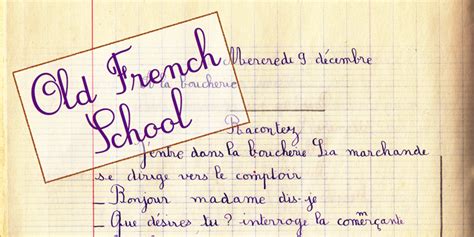 Old French
School
Mercredi 9 décembre
la boucherie
Racontez
J'entre dans la boucherie La marchande
se dirige vers le comptoir
— Bonjour madame dis-je
— Que désires tu ? interroge la commerçante